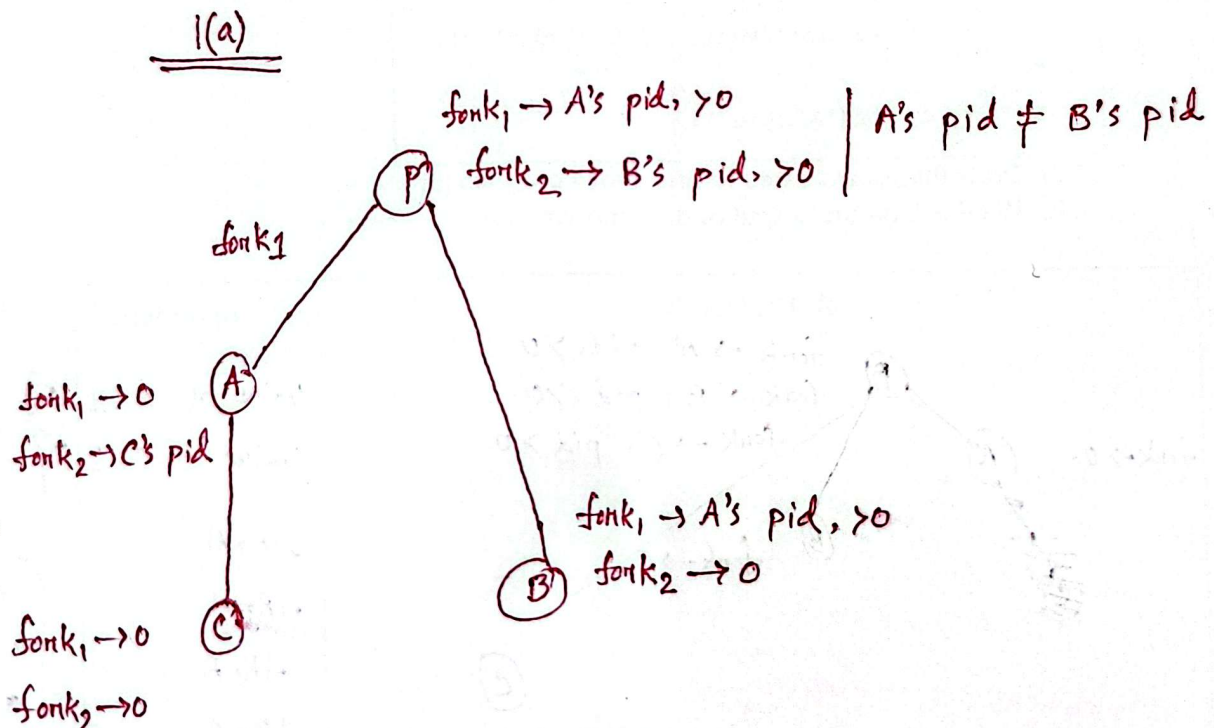 1(a)
fork₁ → A's pid, >0
fork₂ → B's pid, >0
A's pid ≠ B's pid
P
fork1
A
fork₁ → 0
fork₂ → C's pid
fork₁ → A's pid, >0
fork₂ → 0
B
C
fork₁ → 0
fork₂ → 0